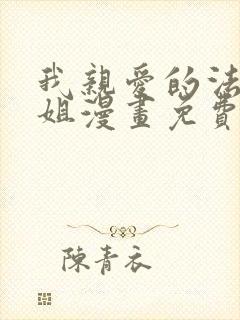 我親愛的法
姐漫畫免費
陳青衣